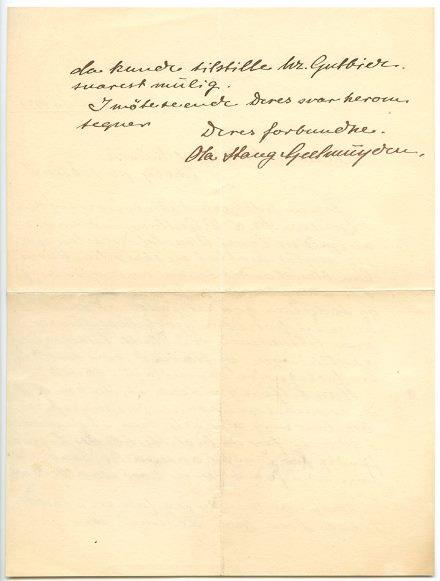 da kunde tilstille Hr. Gutbier.
snarest mülig.
Imøteseende Deres svar herom
tegner
Deres forbundne.
Ola Stang Geelmüyden.